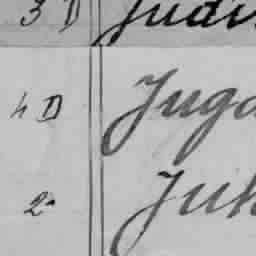 3 D Judi
4 D Juga
2 Juh